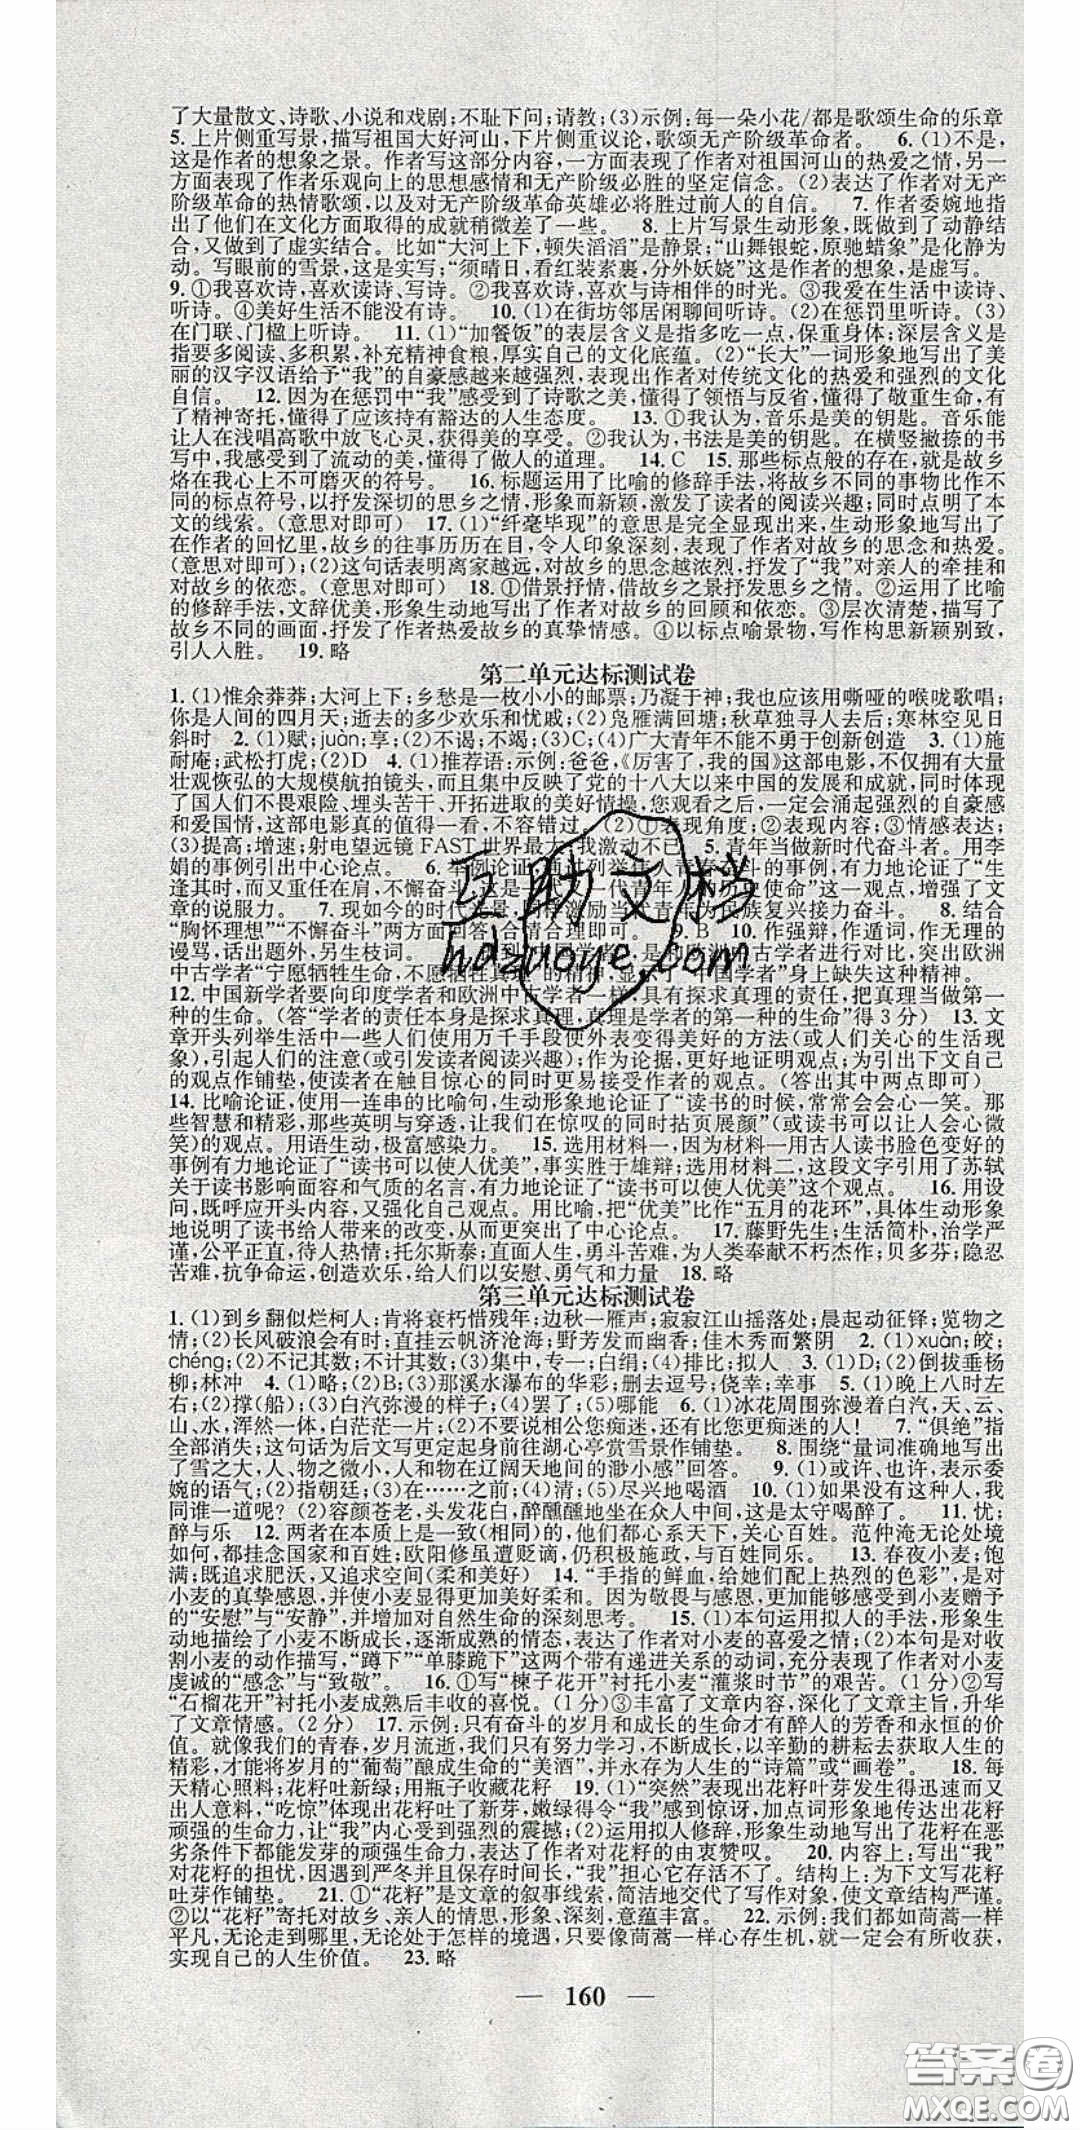 了大量散文、诗歌、小说和戏剧;不耻下问;请教;(3)示例:每一朵小花/都是歌颂生命的乐章
5. 上片侧重写景,描写祖国大好河山,下片侧重议论,歌颂无产阶级革命者。 6. (1)不是,
这是作者的想象之景。作者写这部分内容,一方面表现了作者对祖国河山的热爱之情,另一
方面表现了作者乐观向上的思想感情和无产阶级必胜的坚定信念。(2)表达了作者对无产
阶级革命的热情歌颂,以及对无产阶级革命英雄必将胜过前人的自信。 7. 作者委婉地指
出了他们在文化方面取得的成就稍微差了一些。 8. 上片写景生动形象,既做到了动静结
合,又做到了虚实结合。比如“大河上下,顿失滔滔”是静景;“山舞银蛇,原驰蜡象”是化静为
动。写眼前的雪景,这是实写;“须晴日,看红装素裹,分外妖娆”这是作者的想象,是虚写。
9. ①我喜欢诗,喜欢读诗、写诗。②我喜欢诗,喜欢与诗相伴的时光。③我爱在生活中读诗、
听诗。④美好生活不能没有诗。 10. (1)在街坊邻居闲聊间听诗。(2)在惩罚里听诗。(3)
在门联、门楹上听诗。 11. (1)“加餐饭”的表层含义是指多吃一点,保重身体;深层含义是
指要多阅读、多积累,补充精神食粮,厚实自己的文化底蕴。(2)“长大”一词形象地写出了美
丽的汉字汉语给予“我”的自豪感越来越强烈,表现出作者对传统文化的热爱和强烈的文化
自信。 12. 因为在惩罚中“我”感受到了诗歌之美,懂得了领悟与反省,懂得了敬重生命,有
了精神寄托,懂得了应该持有豁达的人生态度。 13. ①我认为,音乐是美的钥匙。音乐能
让人在浅唱高歌中放飞心灵,获得美的享受。②我认为,书法是美的钥匙。在横竖撇捺的书
写中,我感受到了流动的美,懂得了做人的道理。 14. C 15. 那些标点般的存在,就是故乡
烙在我心上不可磨灭的符号。 16. 标题运用了比喻的修辞手法,将故乡不同的事物比作不
同的标点符号,以抒发深切的思乡之情,形象而新颖,激发了读者的阅读兴趣;同时点明了本
文的线索。(意思对即可) 17. (1)“纤毫毕现”的意思是完全显现出来,生动形象地写出了
在作者的回忆里,故乡的往事历历在目,令人印象深刻,表现了作者对故乡的思念和热爱。
(意思对即可);(2)这句话表明离家越远,对故乡的思念越浓烈,抒发了“我”对亲人的牵挂和
对故乡的依恋。(意思对即可) 18. ①借景抒情,借故乡之景抒发思乡之情。②运用了比喻
的修辞手法,文辞优美,形象生动地写出了作者对故乡的回顾和依恋。③层次清楚,描写了
故乡不同的画面,抒发了作者热爱故乡的真挚情感。④以标点喻景物,写作构思新颖别致,
引人入胜。 19. 略
第二单元达标测试卷
1. (1)惟余莽莽;大河上下;乡愁是一枚小小的邮票;乃凝于神;我也应该用嘶哑的喉咙歌唱;
你是人间的四月天;逝去的多少欢乐和忧戚;(2)凫雁满回塘;秋草独寻人去后;寒林空见日
斜时 2. (1)赋;juàn;享;(2)不谒;不竭;(3)C;(4)广大青年不能不勇于创新创造 3. (1)施
耐庵;武松打虎;(2)D 4. (1)推荐语:示例:爸爸,《厉害了,我的国》这部电影,不仅拥有大量
壮观恢弘的大规模航拍镜头,而且集中反映了党的十八大以来中国的发展和成就,同时体现
了国人们不畏艰险、埋头苦干、开拓进取的美好情操,您观看之后,一定会涌起强烈的自豪感
和爱国情,这部电影真的值得一看,不容错过。(2)①表现角度;②表现内容;③表现方法
(3)提高;增速;射电望远镜 FAST 世界最大;我激动不已 5. 青年当做新时代奋斗者。用李
娟的事例引出中心论点。 6. 举例论证,通过列举伟人青春奋斗的事例,有力地论证了“生
逢其时而又重任在肩,不懈奋斗,这是一代又一代青年人的历史使命”这一观点,增强了文
章的说服力。 7. 现如今的时代光景,同样激励当代青年为民族复兴接力奋斗。 8. 结合
“胸怀理想”“不懈奋斗”两方面回答,合情合理即可。 9. B 10. 作强辩,作遁词,作无理的
谩骂,话出题外,另生枝词。
中古学者“宁愿牺牲生命,不愿牺牲真理”的精神,显示了“中国学者”身上缺失这种精神。
12. 中国新学者要向印度学者和欧洲中古学者一样,具有探求真理的责任,把真理当做第一
种的生命。(答“学者的责任本身是探求真理,真理是学者的第一种的生命”得 3 分) 13. 文
章开头列举生活中一些人们使用万千手段使外表变得美好的方法(或人们关心的生活现
象),引起人们的注意(或引发读者阅读兴趣);作为论据,更好地证明观点;为引出下文自己
的观点作铺垫,使读者在触目惊心的同时更易接受作者的观点。(答出其中两点即可)
14. 比喻论证,使用一连串的比喻句,生动形象地论证了“读书的时候,常常会会心一笑。那
些智慧和精彩,那些英明与穿透,让我们在惊叹的同时拈页展颜”(或读书可以让人会心微
笑)的观点。用语生动,极富感染力。 15. 选用材料一,因为材料一用古人读书脸色变好的
事例有力地论证了“读书可以使人优美”,事实胜于雄辩;选用材料二,这段文字引用了苏轼
关于读书影响面容和气质的名言,有力地论证了“读书可以使人优美”这个观点。 16. 用设
问,既呼应开头内容,又强化自己观点。用比喻,把“优美”比作“五月的花环”,具体形象
地说明了读书给人带来的改变,从而更突出了中心论点。 17. 藤野先生;生活简朴,治学严
谨,公平正直,待人热情;托尔斯泰;直面人生,勇斗苦难,为人类奉献不朽杰作;贝多芬;隐忍
苦难,抗争命运,创造欢乐,给人们以安慰、勇气和力量 18. 略
第三单元达标测试卷
1. (1)到乡翻似烂柯人;肯将衰朽惜残年;边秋一雁声;寂寂江山摇落处;晨起动征铎;览物之
情;(2)长风破浪会有时;直挂云帆济沧海;野芳发而幽香;佳木秀而繁阴 2. (1)xuàn;皎;
chéng;(2)不记其数;不计其数;(3)集中,专一;白绢;(4)排比;拟人 3. (1)D;(2)倒拔垂杨
柳;林冲 4. (1)略;(2)B;(3)那溪水瀑布的华彩;删去逗号;侥幸;幸事 5. (1)晚上八时左
右;(2)撑(船);(3)白汽弥漫的样子;(4)罢了;(5)哪能 6. (1)冰花周围弥漫着白汽,天、云、
山、水,浑然一体,白茫茫一片;(2)不要说相公您痴迷,还有比您更痴迷的人! 7. “俱绝”指
全部消失;这句话为后文写更定起身前往湖心亭赏雪景作铺垫。 8. 围绕“量词准确地写出
了雪之大,人、物之微小,人和物在辽阔天地间的渺小感”回答。 9. (1)或许、也许,表示委
婉的语气;(2)指朝廷;(3)在……之前;(4)清;(5)尽兴地喝酒 10. (1)如果没有这种人,我
同谁一道呢?(2)容颜苍老,头发花白,醉醺醺地坐在众人中间,这是太守喝醉了。 11. 忧;
醉与乐 12. 两者在本质上是一致(相同)的,他们都心系天下,关心百姓。范仲淹无论处境
如何,都挂念国家和百姓;欧阳修虽遭贬谪,仍积极施政,与百姓同乐。 13. 春夜小麦;饱
满;既追求肥沃,又追求空间(柔和美好) 14. “手指的鲜血,给她们配上热烈的色彩”,是对
小麦的真挚感恩,并使小麦显得更加美好柔美。因为敬畏与感恩,更加能够感受到小麦赠予
的“安慰”与“安静”,并增加对自然生命的深刻思考。 15. (1)本句运用拟人的手法,形象生
动地描绘了小麦不断成长,逐渐成熟的情态,表达了作者对小麦的喜爱之情;(2)本句是对收
割小麦的动作描写,“蹲下”“单膝跪下”这两个带有递进关系的动词,充分表现了作者对小麦
虔诚的“感念”与“致敬”。 16. ①写“楝子花开”衬托小麦“灌浆时节”的艰苦。(1 分)②写
“石榴花开”衬托小麦成熟后丰收的喜悦。(1 分)③丰富了文章内容,深化了文章主旨,升华
了文章情感。(2 分) 17. 示例:只有奋斗的岁月和成长的生命才有醉人的芳香和永恒的价
值。就像我们的青春,岁月流逝,我们只有努力学习,不断成长,以辛勤的耕耘去获取人生的
精彩,才能将岁月的“葡萄”酿成生命的“美酒”,并永存为人生的“诗篇”或“画卷”。 18. 每
天精心照料;花籽吐新绿;用瓶子收藏花籽 19. (1)“突然”表现出花籽叶芽发生得迅速而又
出人意料,“吃惊”体现出花籽吐了新芽,嫩绿得令“我”感到惊讶,加点词形象地传达出花籽
顽强的生命力,让“我”内心受到强烈的震撼;(2)运用拟人修辞,形象生动地写出了花籽在恶
劣条件下都能发芽的顽强生命力,表达了作者对花籽的由衷赞叹。 20. 内容上:写出“我”
对花籽的担忧,因遇到严冬并且保存时间长,“我”担心它存活不了。结构上:为下文写花籽
吐芽作铺垫。 21. ①“花籽”是文章的叙事线索,简洁地交代了写作对象,使文章结构严谨。
②以“花籽”寄托对故乡、亲人的情思,形象、深刻,意蕴丰富。 22. 示例:我们都如茼蒿一样
平凡,无论走到哪里,无论处于怎样的境遇,只要像茼蒿一样心存生机,就一定会有所收获,
实现自己的人生价值。 23. 略
— 160 —
互助文档
hdzuoye.com
答案圈
MXQE.COM